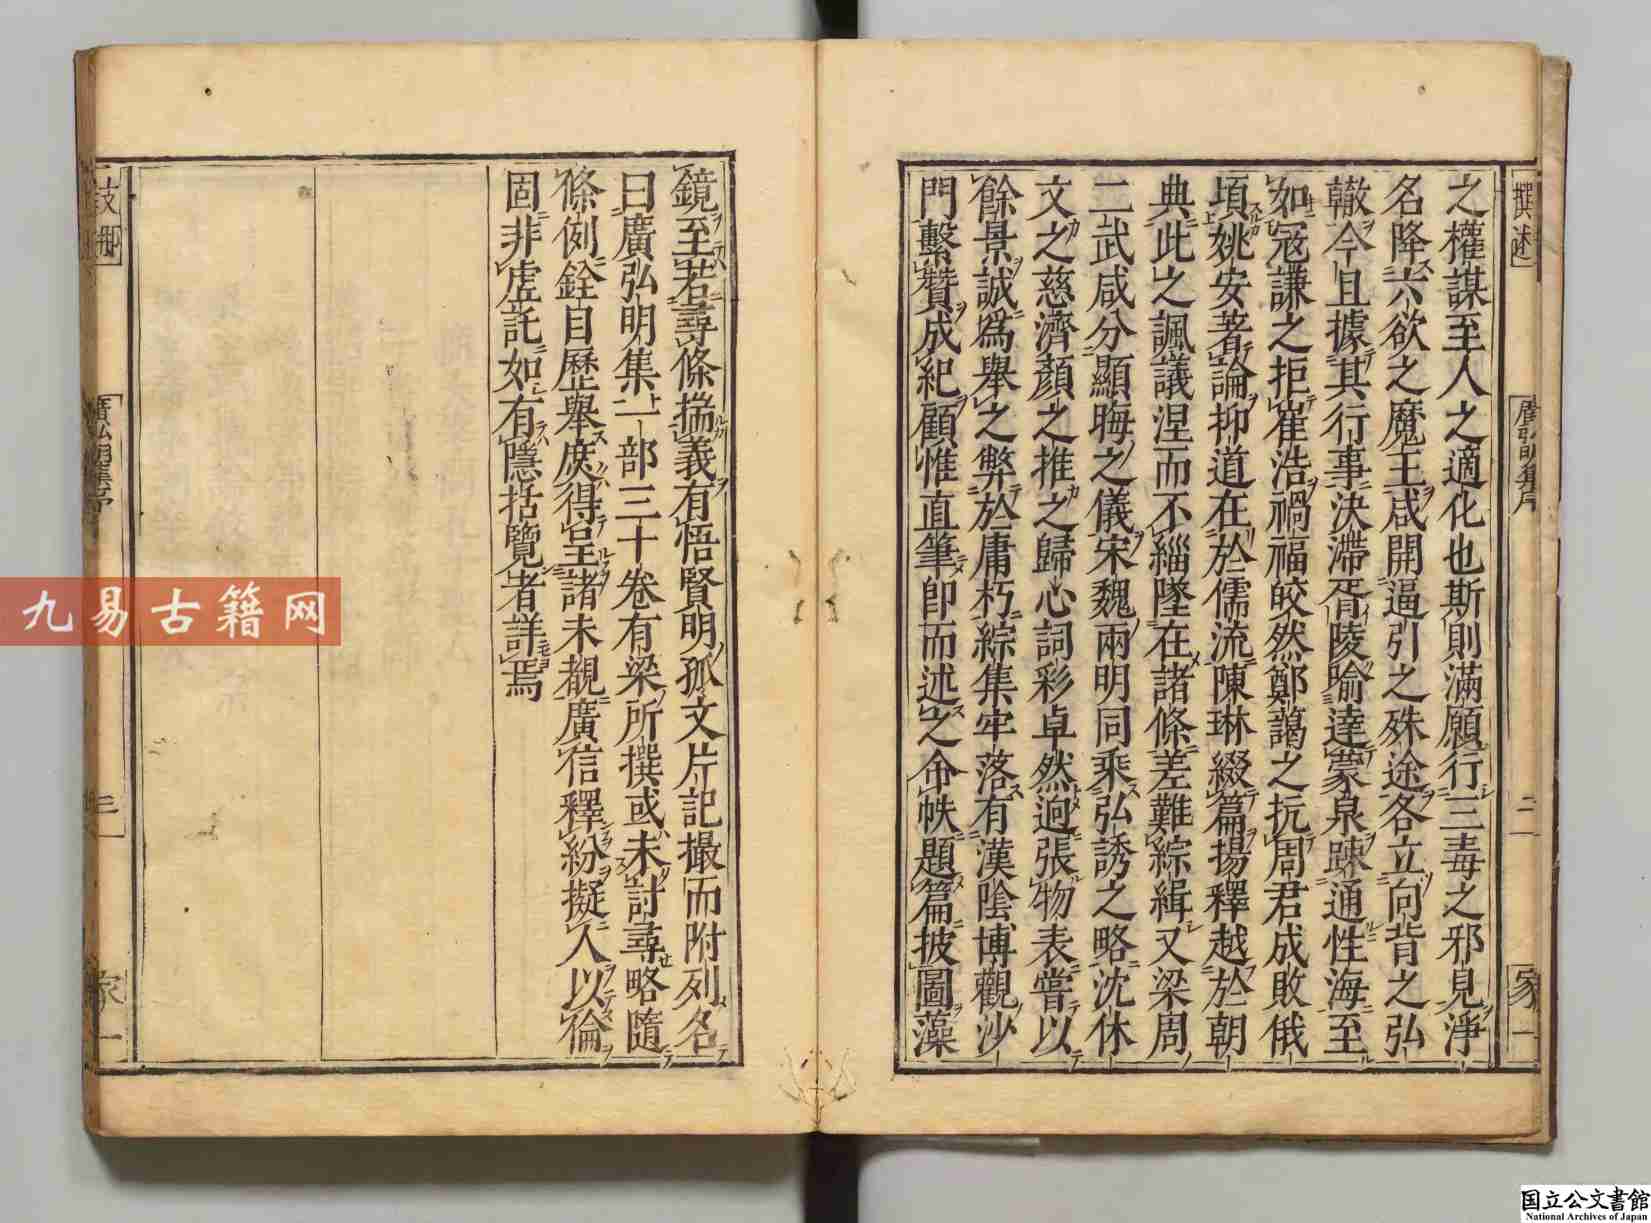 之權謀至人之適化也斯則滿願行三毒之邪見淨
名降六欲之魔王咸開逼引之殊途各立向背之弘
轍今且據其行事決滯胥陵喻達蒙泉疎通性海至
如冦謙之拒崔浩禍福皎然鄭藹之抗周君成敗俄
頃姚安著論抑道在於儒流陳琳綴篇揚釋越於朝
典此之諷議涅而不緇墜在諸條差難綜緝又梁周
二武咸分顯晦之儀宋魏兩明同乘弘誘之略沈休
文之慈濟顏之推之歸心詞彩卓然迥張物表嘗以
餘景誠為舉之弊於庸朽綜集牢落有漢陰博觀沙
門繫贊成紀顧惟直筆即而述之命帙題篇披圖藻
鏡至若尋條揣義有悟賢明孤文片記撮而附列名
曰廣弘明集一部三十卷有梁所撰或未討尋略隨
條例銓目歷舉庶得呈諸未覩廣信釋紛擬人以倫
固非虛託如有隱括覽者詳焉
撰述
廣弘明集序
二
家一
支那
廣弘明集序
三
家一
九易古籍网
国立公文書館
National Archives of Japan